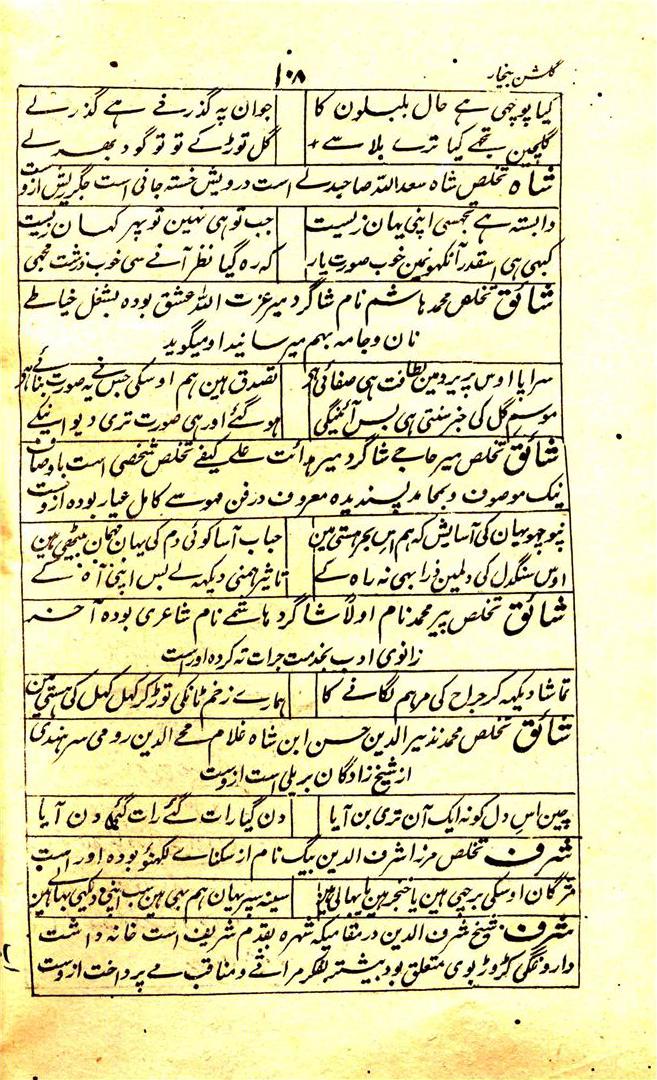 گلشن بیخار
۱۰۸
کیا پوچھی ہے حال بلبلون کا جوان پہ گذرنے ہے گذرلے
گلچین تجھے کیا ترے بلا سے گل توڑکے تو تو گود بھرلے
شاہ تخلص شاہ سعداللہ صاحبدلے است درویش خستہ جانی است جگر ریش ازوست
وابستہ ہے تجھسی اپنی یہان زیست جب توہی نہین تو پہر کہان زیست
کبہی ہی اسقدر آنکہونمین خوب صورت یار کہ رہ گیا نظر آنے سی خوب وزشت مجھی
شائق تخلص محمد ہاشم نام شاگرد میر عزت اللہ عشق بودہ بشغل خیاطے
نان وجامہ بہم میرسانید او میگوید
سراپا اوس پریرومین لطافت ہی صفائی ہی تصدق ہین ہم اوسکی جس نے یہ صورت بنائی ہی
موسم گل کی خبر سنتی ہی بس آئینگی ہوگئے اور ہی صورت تری دیوانیکے
شائق تخلص میر حاجے شاگرد میر ہدائت علے کیفے تخلص شخصی است باوصاف
نیک موصوف وبمحامد پسندیدہ معروف درفن موسے کامل عیار بودہ ازوست
نپوچھو یہان کی آسایش کہ ہم اس بحر ہستی مین حباب آسا کوئی دم کی یہان مہمان بیٹھی ہین
اوس سنگدل کی دلمین ذرا بہی نہ راہ کے تاثیر ہمنی دیکہہ لے بس اپنی آہ کے
شائق تخلص پیر محمد نام اولاً شاگرد ہاشمے نام شاعری بودہ آخر
زانوی ادب بخدمت جرات تہ کردہ اوراست
تماشا دیکہہ کر جراح کی مرہم لگانے کا ہمارے زخم ٹانکی توڑکر کہل کہل کی ہستی ہین
شائق تخلص محمد نذیر الدین حسن ابن شاہ غلام محے الدین رومی سرہندی
از شیخ زادگان بریلی است ازوست
چین اس دل کو نہ ایک آن تری بن آیا دن گیا رات گئے رات گئی دن آیا
شرف تخلص مرزا شرف الدین بیگ نام از سکناے لکھنؤ بودہ اوراست
مژگان اوسکی برچھی ہین یا خنجر ہین یا بہالی ہین سینہ سپر یہان ہم بہی ہین سب اپنی دیکہی بہالے ہین
شرف شیخ شرف الدین درمقامیکہ شہرہ بقدم شریف است خانہ داشت
داروغگی کڑوڑ بوی متعلق بود بیشتر بفکر مراثے ومناقب مے پرداخت ازوست